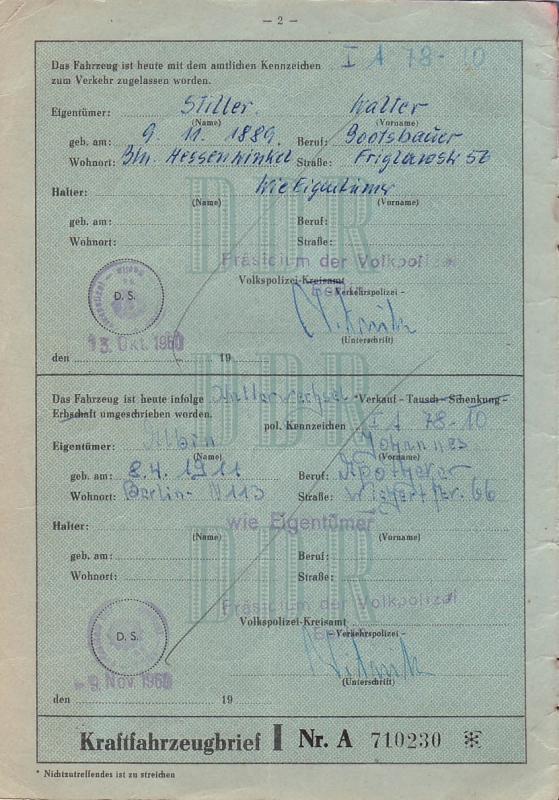 — 2 —
Das Fahrzeug ist heute mit dem amtlichen Kennzeichen I A 78-10
zum Verkehr zugelassen worden.
Eigentümer: Stiller. Walter
(Name) (Vorname)
geb. am: 9. 11. 1889. Beruf: Bootsbauer
Wohnort: Bln. Hessenwinkel Straße: 56
Halter: Wie Eigentümer
(Name) (Vorname)
geb. am: Beruf:
Wohnort: Straße:
Präsidium der Volkpolizei
Volkspolizei-Kreisamt
Berlin
– Verkehrspolizei –
D. S.
(Unterschrift)
13. Okt. 1960
den 19
DDR
Das Fahrzeug ist heute infolge Halterwechsel *Verkauf – Tausch – Schenkung –
Erbschaft umgeschrieben worden.
pol. Kennzeichen I A 78-10
Eigentümer: Albin Johannes
(Name) (Vorname)
geb. am: 8.4.1911 Beruf: Apotheker
Wohnort: Berlin-N113 Straße: Wichertstr. 66
DDR
Halter: wie Eigentümer
(Name) (Vorname)
geb. am: Beruf:
Wohnort: Straße:
DDR
Präsidium der Volkpolizei
Volkspolizei-Kreisamt
Berlin
– Verkehrspolizei –
D. S.
(Unterschrift)
-9. Nov. 1960
den 19
Kraftfahrzeugbrief I Nr. A 710230 *
* Nichtzutreffendes ist zu streichen